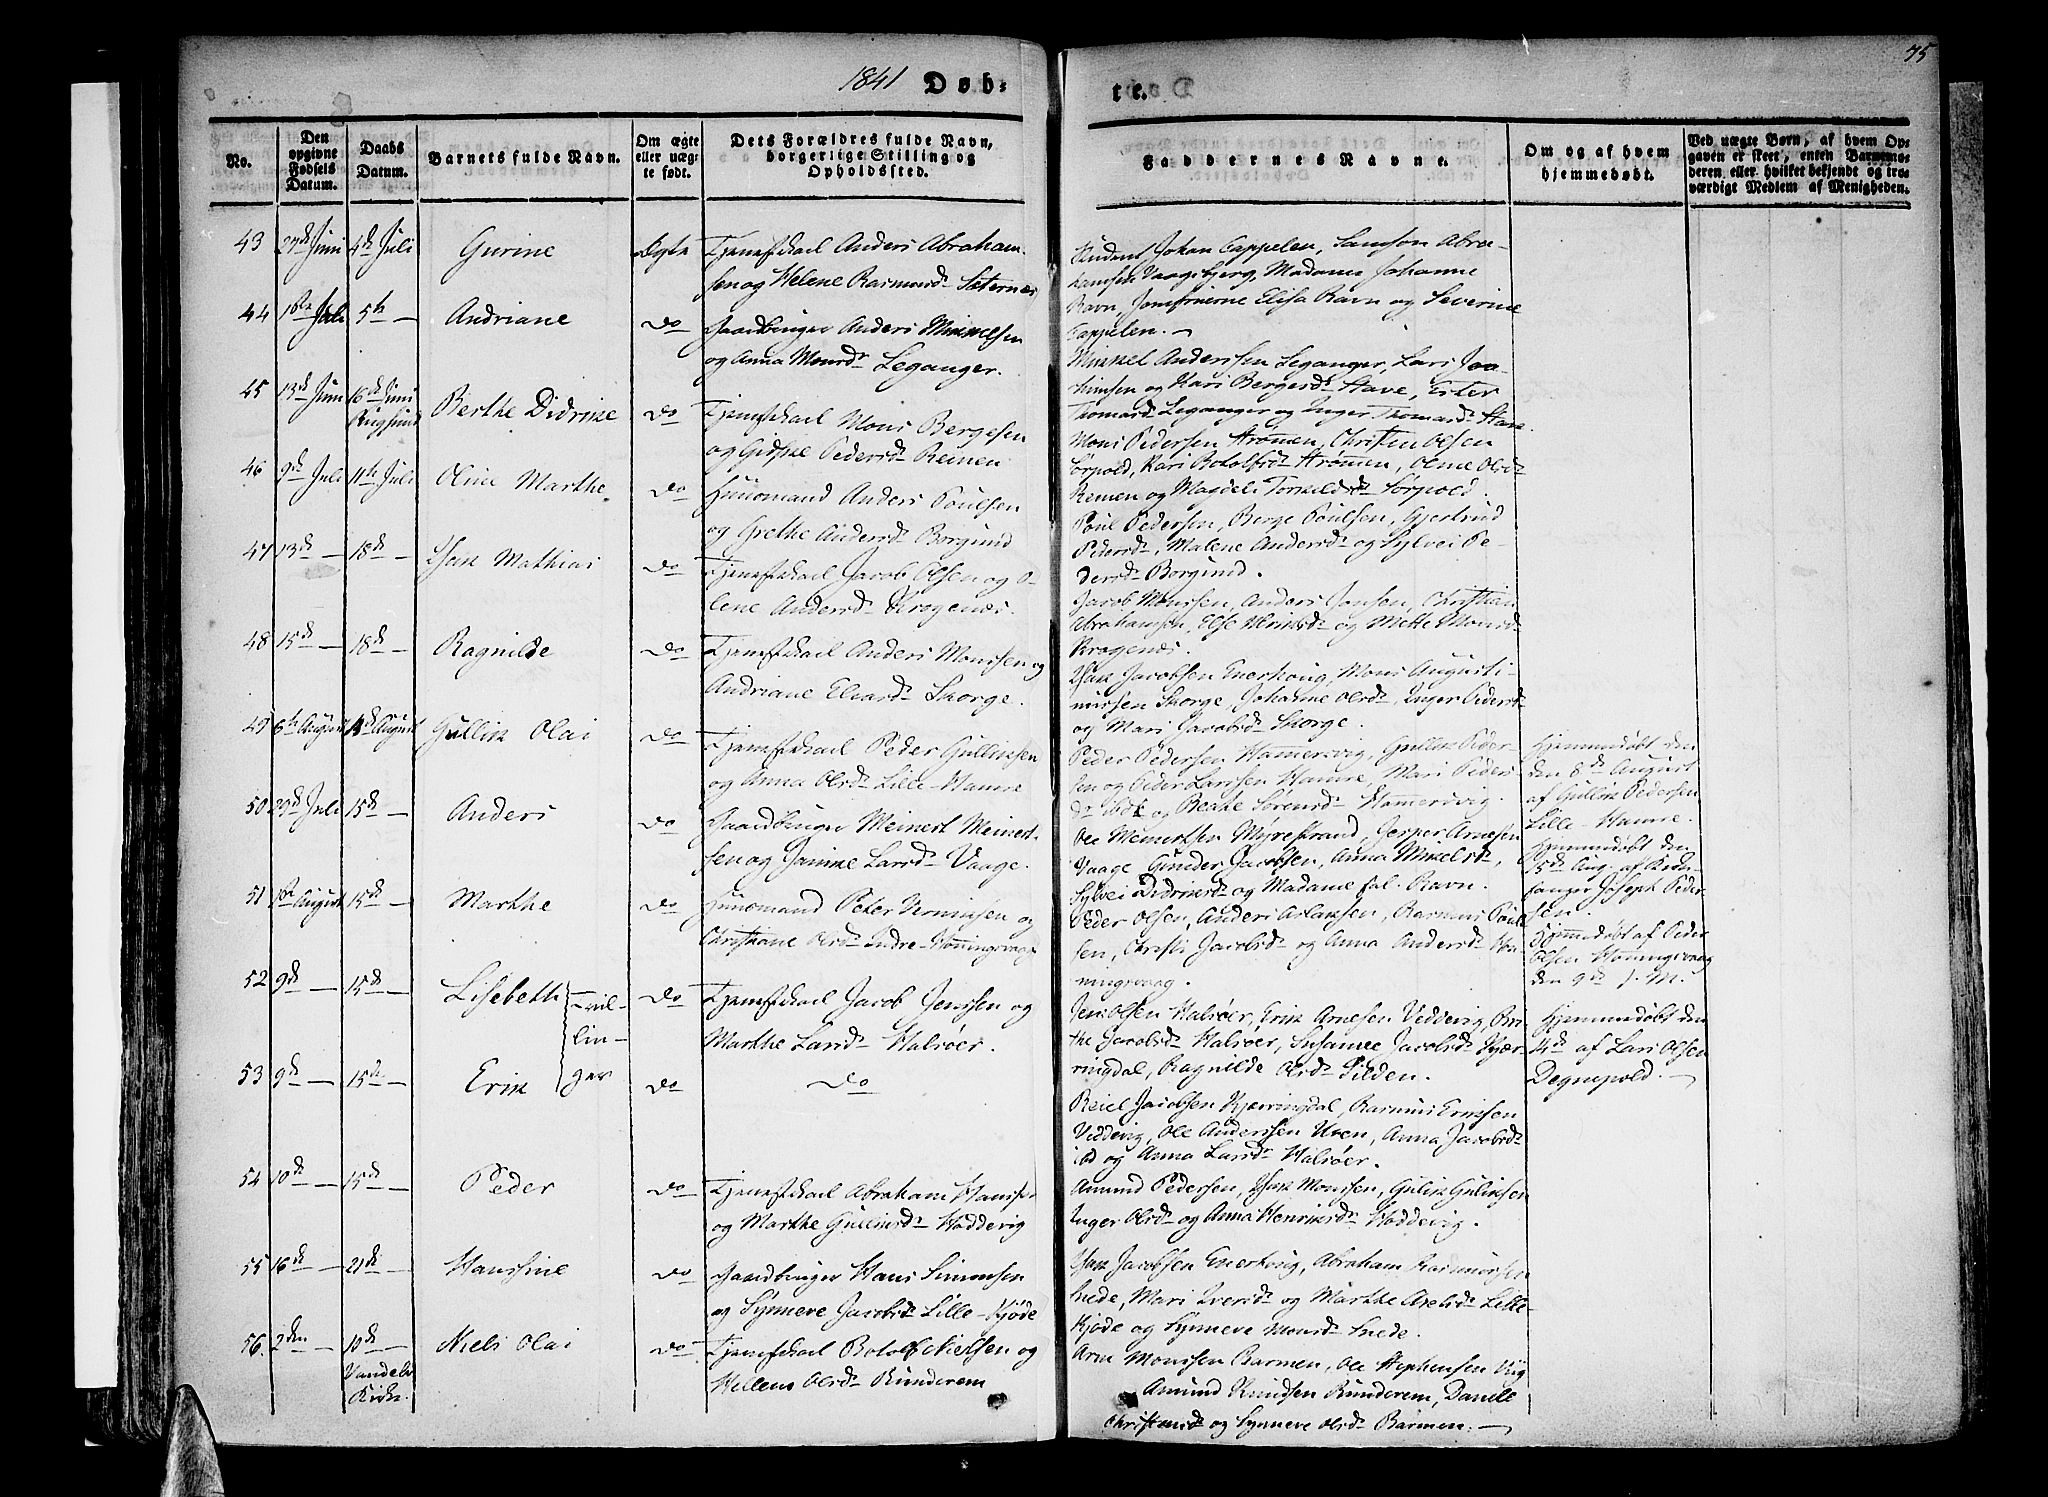 1841 Døb-
te.
75
No.
Den opgivne Fødsels Datum.
Daabs Datum.
Barnets fulde Navn.
Om ægte eller uægte født.
Dets Forældres fulde Navn, borgerlige Stilling og Opholdssted.
Faddernes Navne.
Om og af hvem hjemmedøbt.
Ved uægte Børn, af hvem Opgaven er skeet, enten Barnemoderen eller hvilket bekjendt og troværdigt Medlem af Menigheden.
43 27de Juni 4de Juli Gurine Ægte Tjenestkarl Anders Abraham-
sen og Helene Rasmusd. Sæternæs
Student Johan Cappelen, Samson Abra-
hamsen Vaagsbjerg, Madame Johanne
Ravn, Jomfruerne Elisa Ravn og Severine
Cappelen.
44 1ste Juli 5te — Andriane do Gaardbruger Anders Mikkelsen
og Anna Monsd. Leganger.
Mikkel Anderssen Leganger, Lars Joa-
kimsen og Kari Bergesd. Stave, Ester
Thomasd. Leganger og Inger Thomasd. Stave.
45 13de Juni 16de Juni Rugsund Berthe Didrikke do Tjenestkarl Mons Bergesen
og Gidske Pedersd. Reinen
Mons Pedersen Strømen, Christen Olsen
Sørpold, Kari Botolfsd. Strømmen, Oline Olsd.
Remen og Magdeli Torkildsd. Sørpold.
46 9de Juli 11te Juli Oline Marthe do Huusmand Anders Poulsen
og Grethe Andersd. Borgund
Poul Pedersen, Berge Poulsen, Gjertrud
Pedersd., Malene Andersd. og Sylvei Pe-
dersd. Borgund.
47 13de — 18de — Isak Mathias do Tjenestkarl Jacob Olsen og O-
lene Andersd. Krogenæs.
Jacob Monssen, Anders Jansen, Christian
Abrahamsen, Else Henriksd. og Mette Monsd.
Krogenæs.
48 15de — 18de — Ragnilde do Tjenestkarl Anders Monssen og
Andriane Eliasd. Skorge.
Isak Jacobsen Enerhoug, Mons Augusti-
nussen Skorge, Johanne Olsd., Inger Pedersd.
og Mari Jacobsd. Skorge.
49 6te August August Gullik Olai do Tjenestkarl Peder Gulliksen
og Anna Olsd. Lille-Hamre
Peder Pedersen Hamersvig, Gullik Peder-
sen og Peder Larssen Hamre, Mari Peders-
d. ibd. og Beathe Sørensd. Hamersvig.
Hjemmedøbt den
den 8de August
af Gullik Pedersen
Lille-Hamre.
50 29de Juli 15de — Anders do Gaardbruger Meinert Meinert-
sen og Janike Larsd. Vaage.
Ole Meinertsen Myrestrand, Jesper Arnesen
Vaage, Gunder Jacobsen, Anna Mikkelsd.,
Sylvei Didriksd. og Madame sal. Ravn.
Hjemmedøbt den
5de Aug. af Kirke-
sanger Joseph Peder-
sen.
51 1ste August 15de — Marthe do Huusmand Peter Verniksen og
Christiane Olsd. Indre-Honningsvaag
Peder Olsen, Anders Aslaksen, Rasmus Poul-
sen, Christi Jacobsd. og Anna Andersd. Ho-
ningsvaag.
Hjemmedøbt af Peder
Olsen Honningsvaag
den 9de s. M.
52 9de — 15de — Lisebeth Tvil-
lin-
ger do Tjenestkarl Jacob Jenssen og
Marthe Larsd. Halsøer.
Jens Olsen Halsøer, Erik Arnesen Viddevig, Bri-
the Jacobsd. Halsøer, Susanne Jacobsd. Kjær-
ringdal, Ragnilde Olsd. Silden.
Hjemmedøbt den
14de af Lars Olsen
Degnepold.
53 9de — 15de — Erik do do
Reiel Jacobsen Kjæringdal, Rasmus Eriksen
Viddevig, Ole Anderssen Uren, Anna Jacobsd.
ibd og Anna Larsd. Halsøer.
54 10de — 15de — Peder do Tjenestkarl Abraham Hansse
og Marthe Gulliksd. Hoddevig
Amund Pedersen, Isak Monssen, Gulik Guliksen
Inger Olsd. og Anna Henriksd. Hoddevig.
55 16de — 21de — Hanssine do Gaardbruger Hans Simonsen
og Synneve Jacobsd. Lille-Kjøde
Isak Jacobsen Enerhoug, Abraham Rasmussen
Snede, Mari Iversd. og Marthe Axelsd. Lille-
Kjøde og Synneve Monsd. Snede.
56. 2den — 10de Vandelvs Kirke. Niels Olai do Tjenestkarl Botolf Nielsen og
Hellene Olsd. Runderem
Arne Monssen Barmen, Ole Stephensen Vig
Amund Knudsen Runderem, Danile
Christensd. og Synneve Olsd. Barmen.